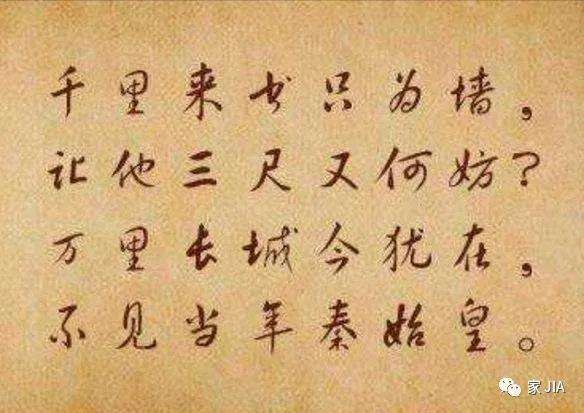 千里来书只为墙，
让他三尺又何妨？
万里长城今犹在，
不见当年秦始皇。
家JIA